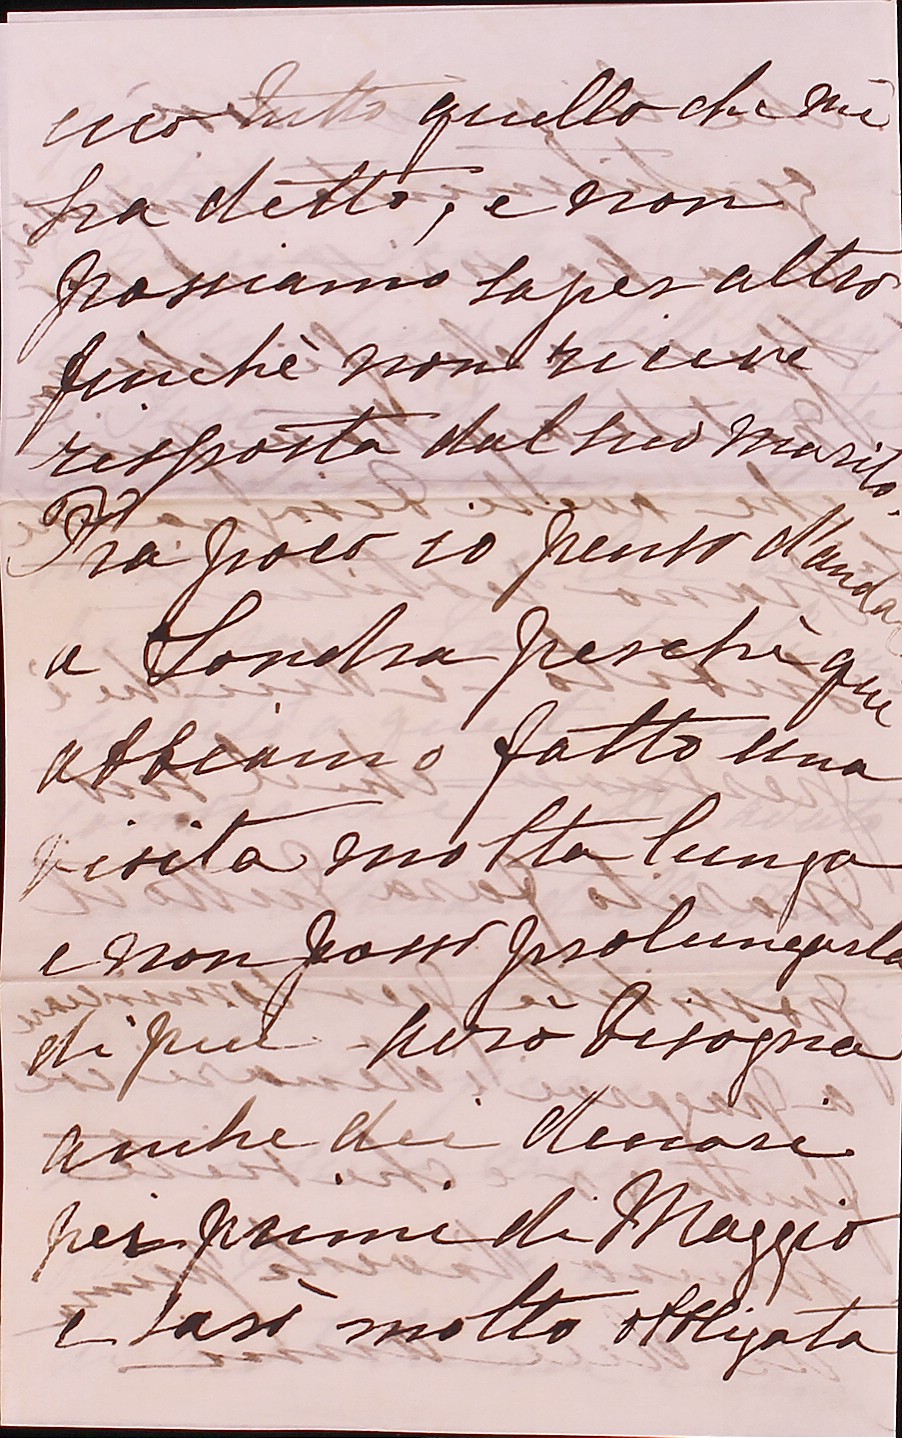 cico tutto quello che mi
ha detto, e non
possiamo saper altro
finchè non riceve
risposta dal suo marito.
Fra poco io penso d'anda
a Londra perchè qui
abbiamo fatto una
visita molta lunga
e non posso prolungarla
di più. Avrò bisogna
anche dei denari
pei primi di Maggio
e sarò molto obbligata